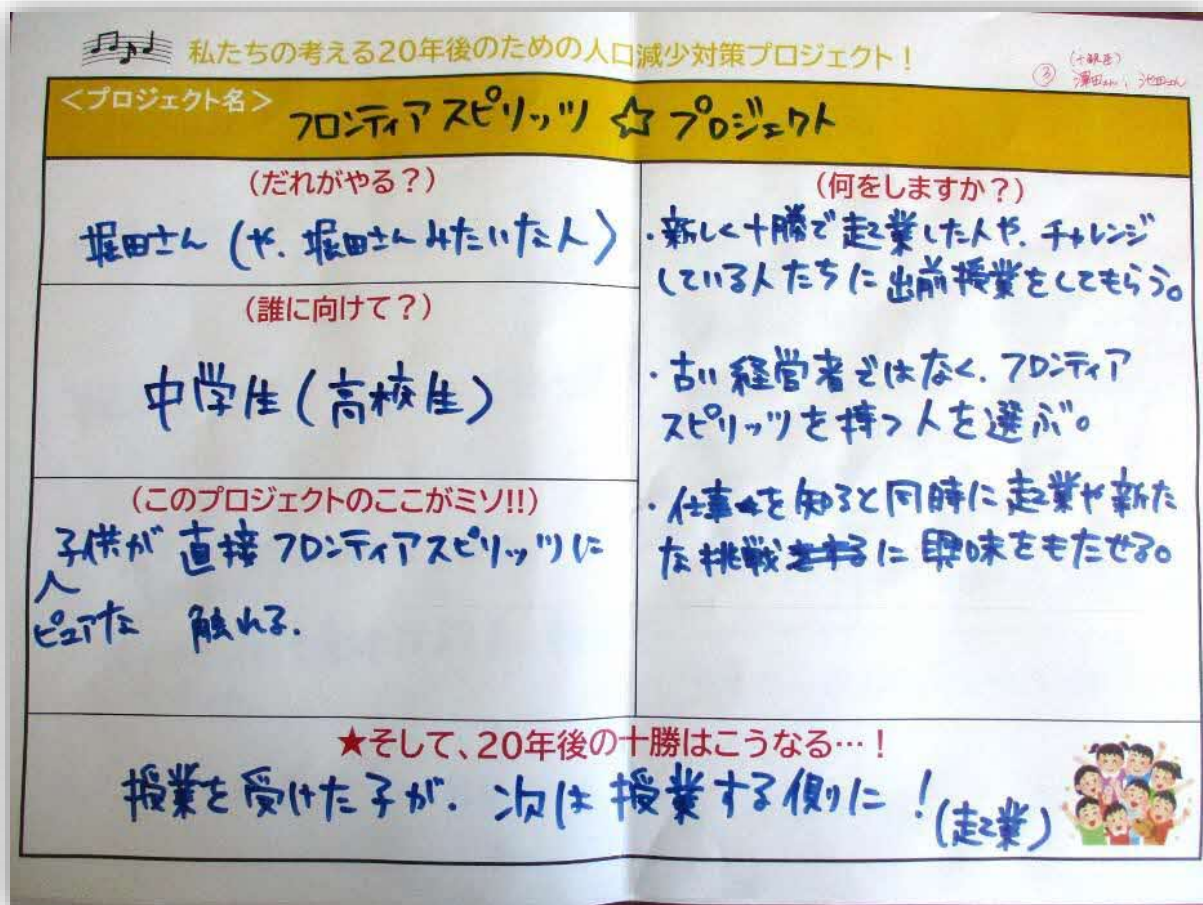 私たちの考える20年後のための人口減少対策プロジェクト!
③
<プロジェクト名>
フロンティアスピリッツ☆プロジェクト
(だれがやる?)
堀田さん(や、堀田さんみたいな人)
(誰に向けて?)
中学生(高校生)
(このプロジェクトのここがミソ!!)
子供が 直接フロンティアスピリッツに
ピュアな 触れる.
(何をしますか?)
・新しく十勝で起業した人や、チャレンジ
している人たちに出前授業をしてもらう。
・古い経営者ではなく、フロンティア
スピリッツを持つ人を選ぶ。
・仕事を知ると同時に起業や新た
な挑戦に興味をもたせる。
★そして、20年後の十勝はこうなる…!
授業を受けた子が、次は授業する側に!
(起業)